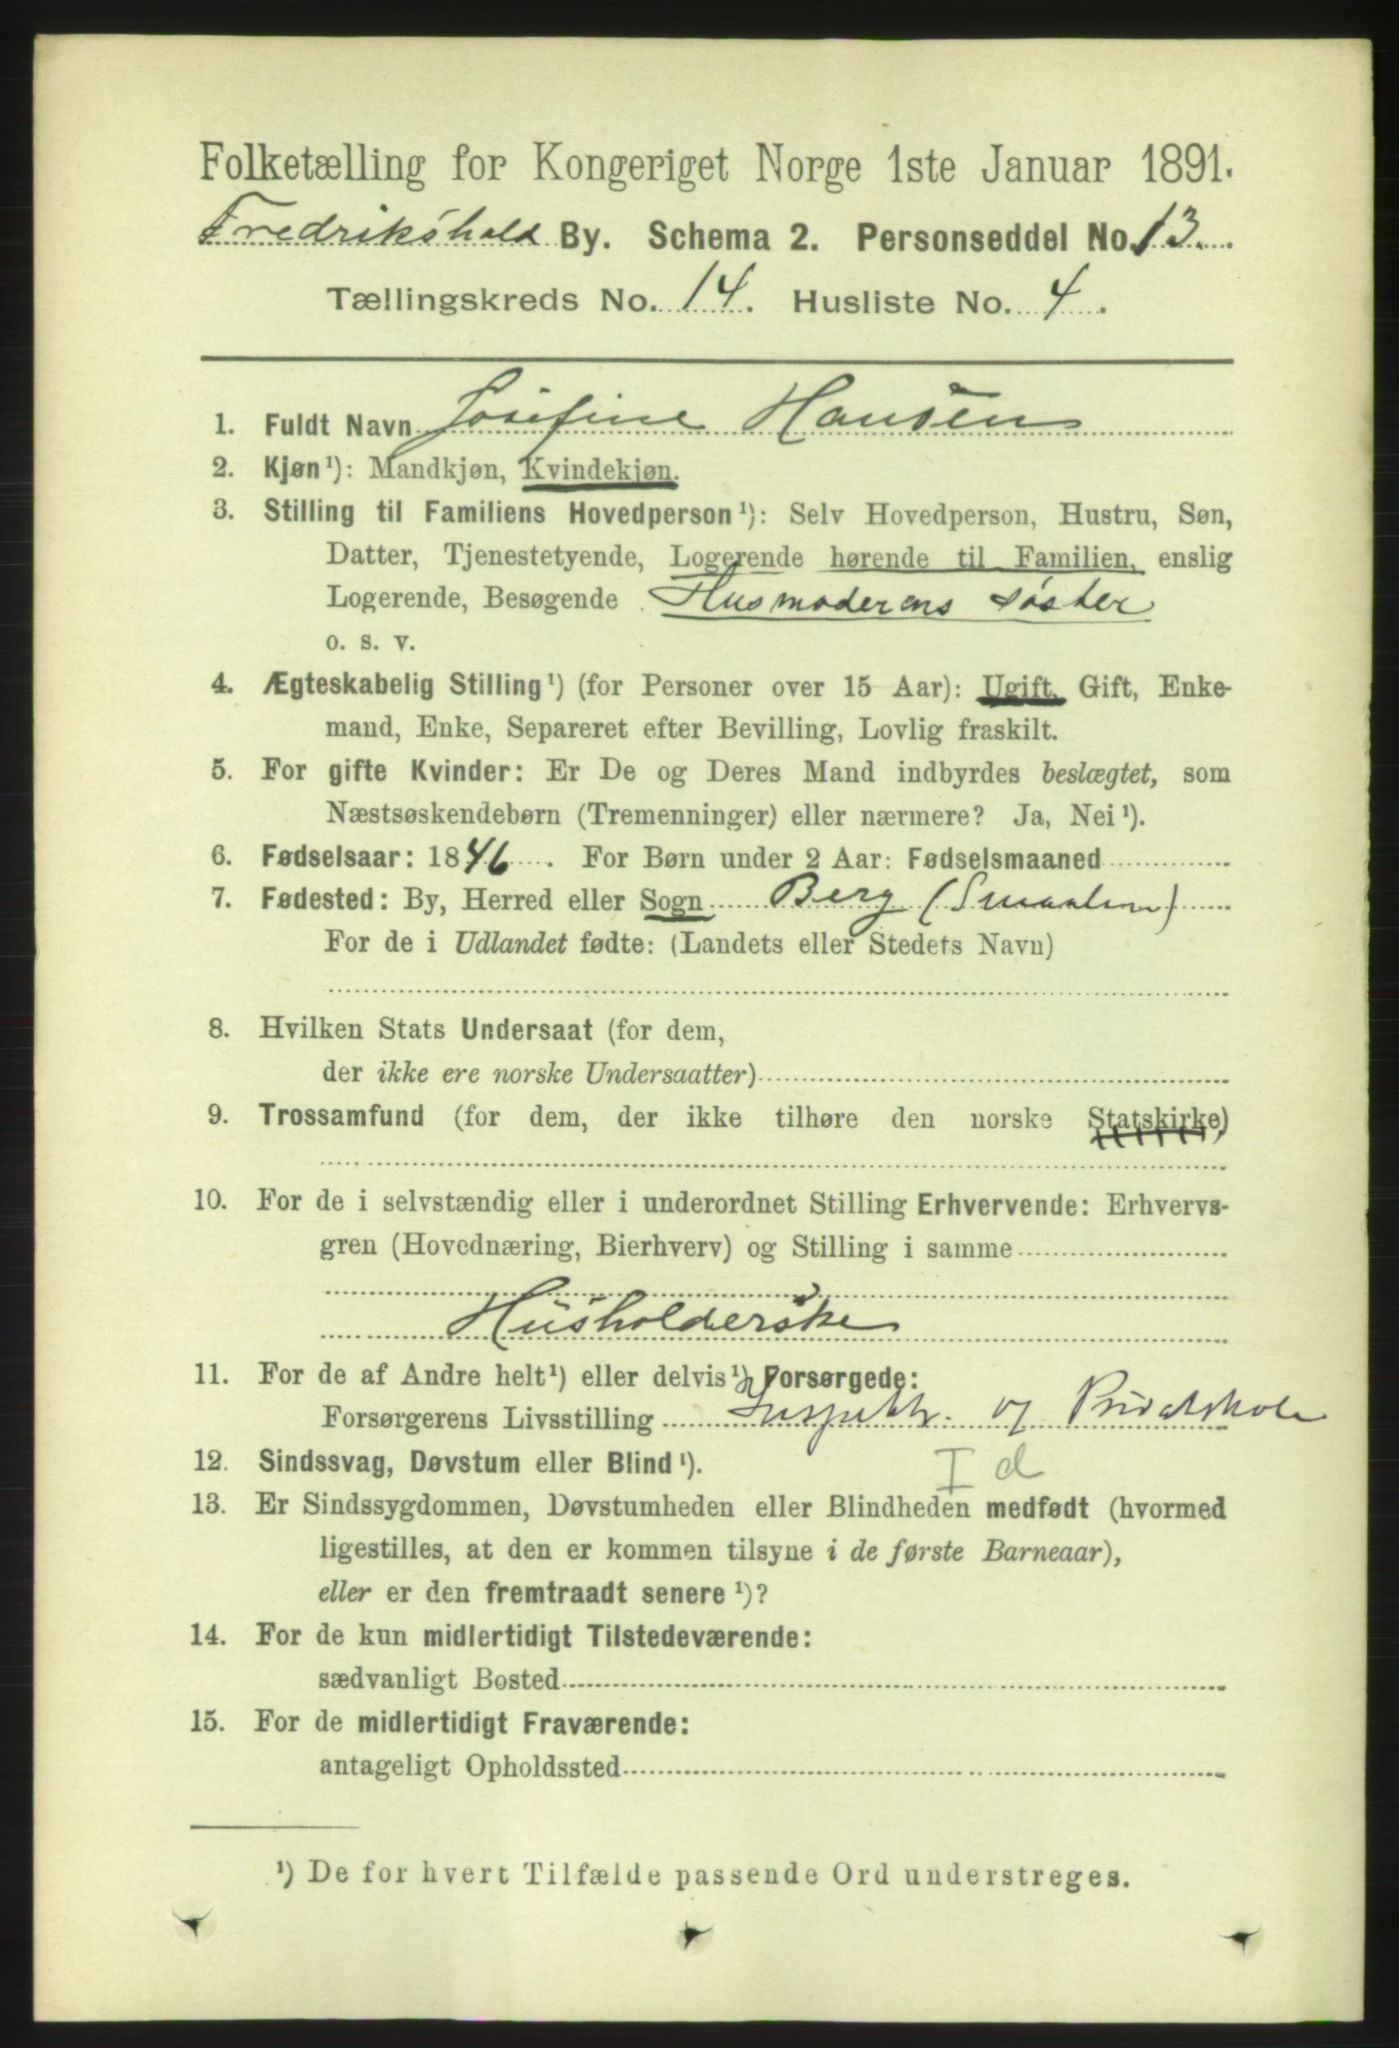 Folketælling for Kongeriget Norge 1ste Januar 1891.
Fredrikshald By. Schema 2. Personseddel No. 13.
Tællingskreds No. 14. Husliste No. 4.
1. Fuldt Navn Josefine Hansen
2. Kjøn ¹): Mandkjøn, Kvindekjøn.
3. Stilling til Familiens Hovedperson ¹): Selv Hovedperson, Hustru, Søn,
Datter, Tjenestetyende, Logerende hørende til Familien, enslig
Logerende, Besøgende Husmoderens søster
o. s. v.
4. Ægteskabelig Stilling ¹) (for Personer over 15 Aar): Ugift, Gift, Enke-
mand, Enke, Separeret efter Bevilling, Lovlig fraskilt.
5. For gifte Kvinder: Er De og Deres Mand indbyrdes beslægtet, som
Næstsøskendebørn (Tremenninger) eller nærmere? Ja, Nei ¹).
6. Fødselsaar: 1846. For Børn under 2 Aar: Fødselsmaaned
7. Fødested: By, Herred eller Sogn Berg (Smaalene)
For de i Udlandet fødte: (Landets eller Stedets Navn)
8. Hvilken Stats Undersaat (for dem,
der ikke ere norske Undersaatter)
9. Trossamfund (for dem, der ikke tilhøre den norske Statskirke)
10. For de i selvstændig eller i underordnet Stilling Erhvervende: Erhvervs-
gren (Hovednæring, Bierhverv) og Stilling i samme
Husholderske
11. For de af Andre helt ¹) eller delvis ¹) Forsørgede:
Forsørgerens Livsstilling Inspektr. og Privatskole
I d
12. Sindssvag, Døvstum eller Blind ¹).
13. Er Sindssygdommen, Døvstumheden eller Blindheden medfødt (hvormed
ligestilles, at den er kommen tilsyne i de første Barneaar),
eller er den fremtraadt senere ¹)?
14. For de kun midlertidigt Tilstedeværende:
sædvanligt Bosted
15. For de midlertidigt Fraværende:
antageligt Opholdssted
¹) De for hvert Tilfælde passende Ord understreges.